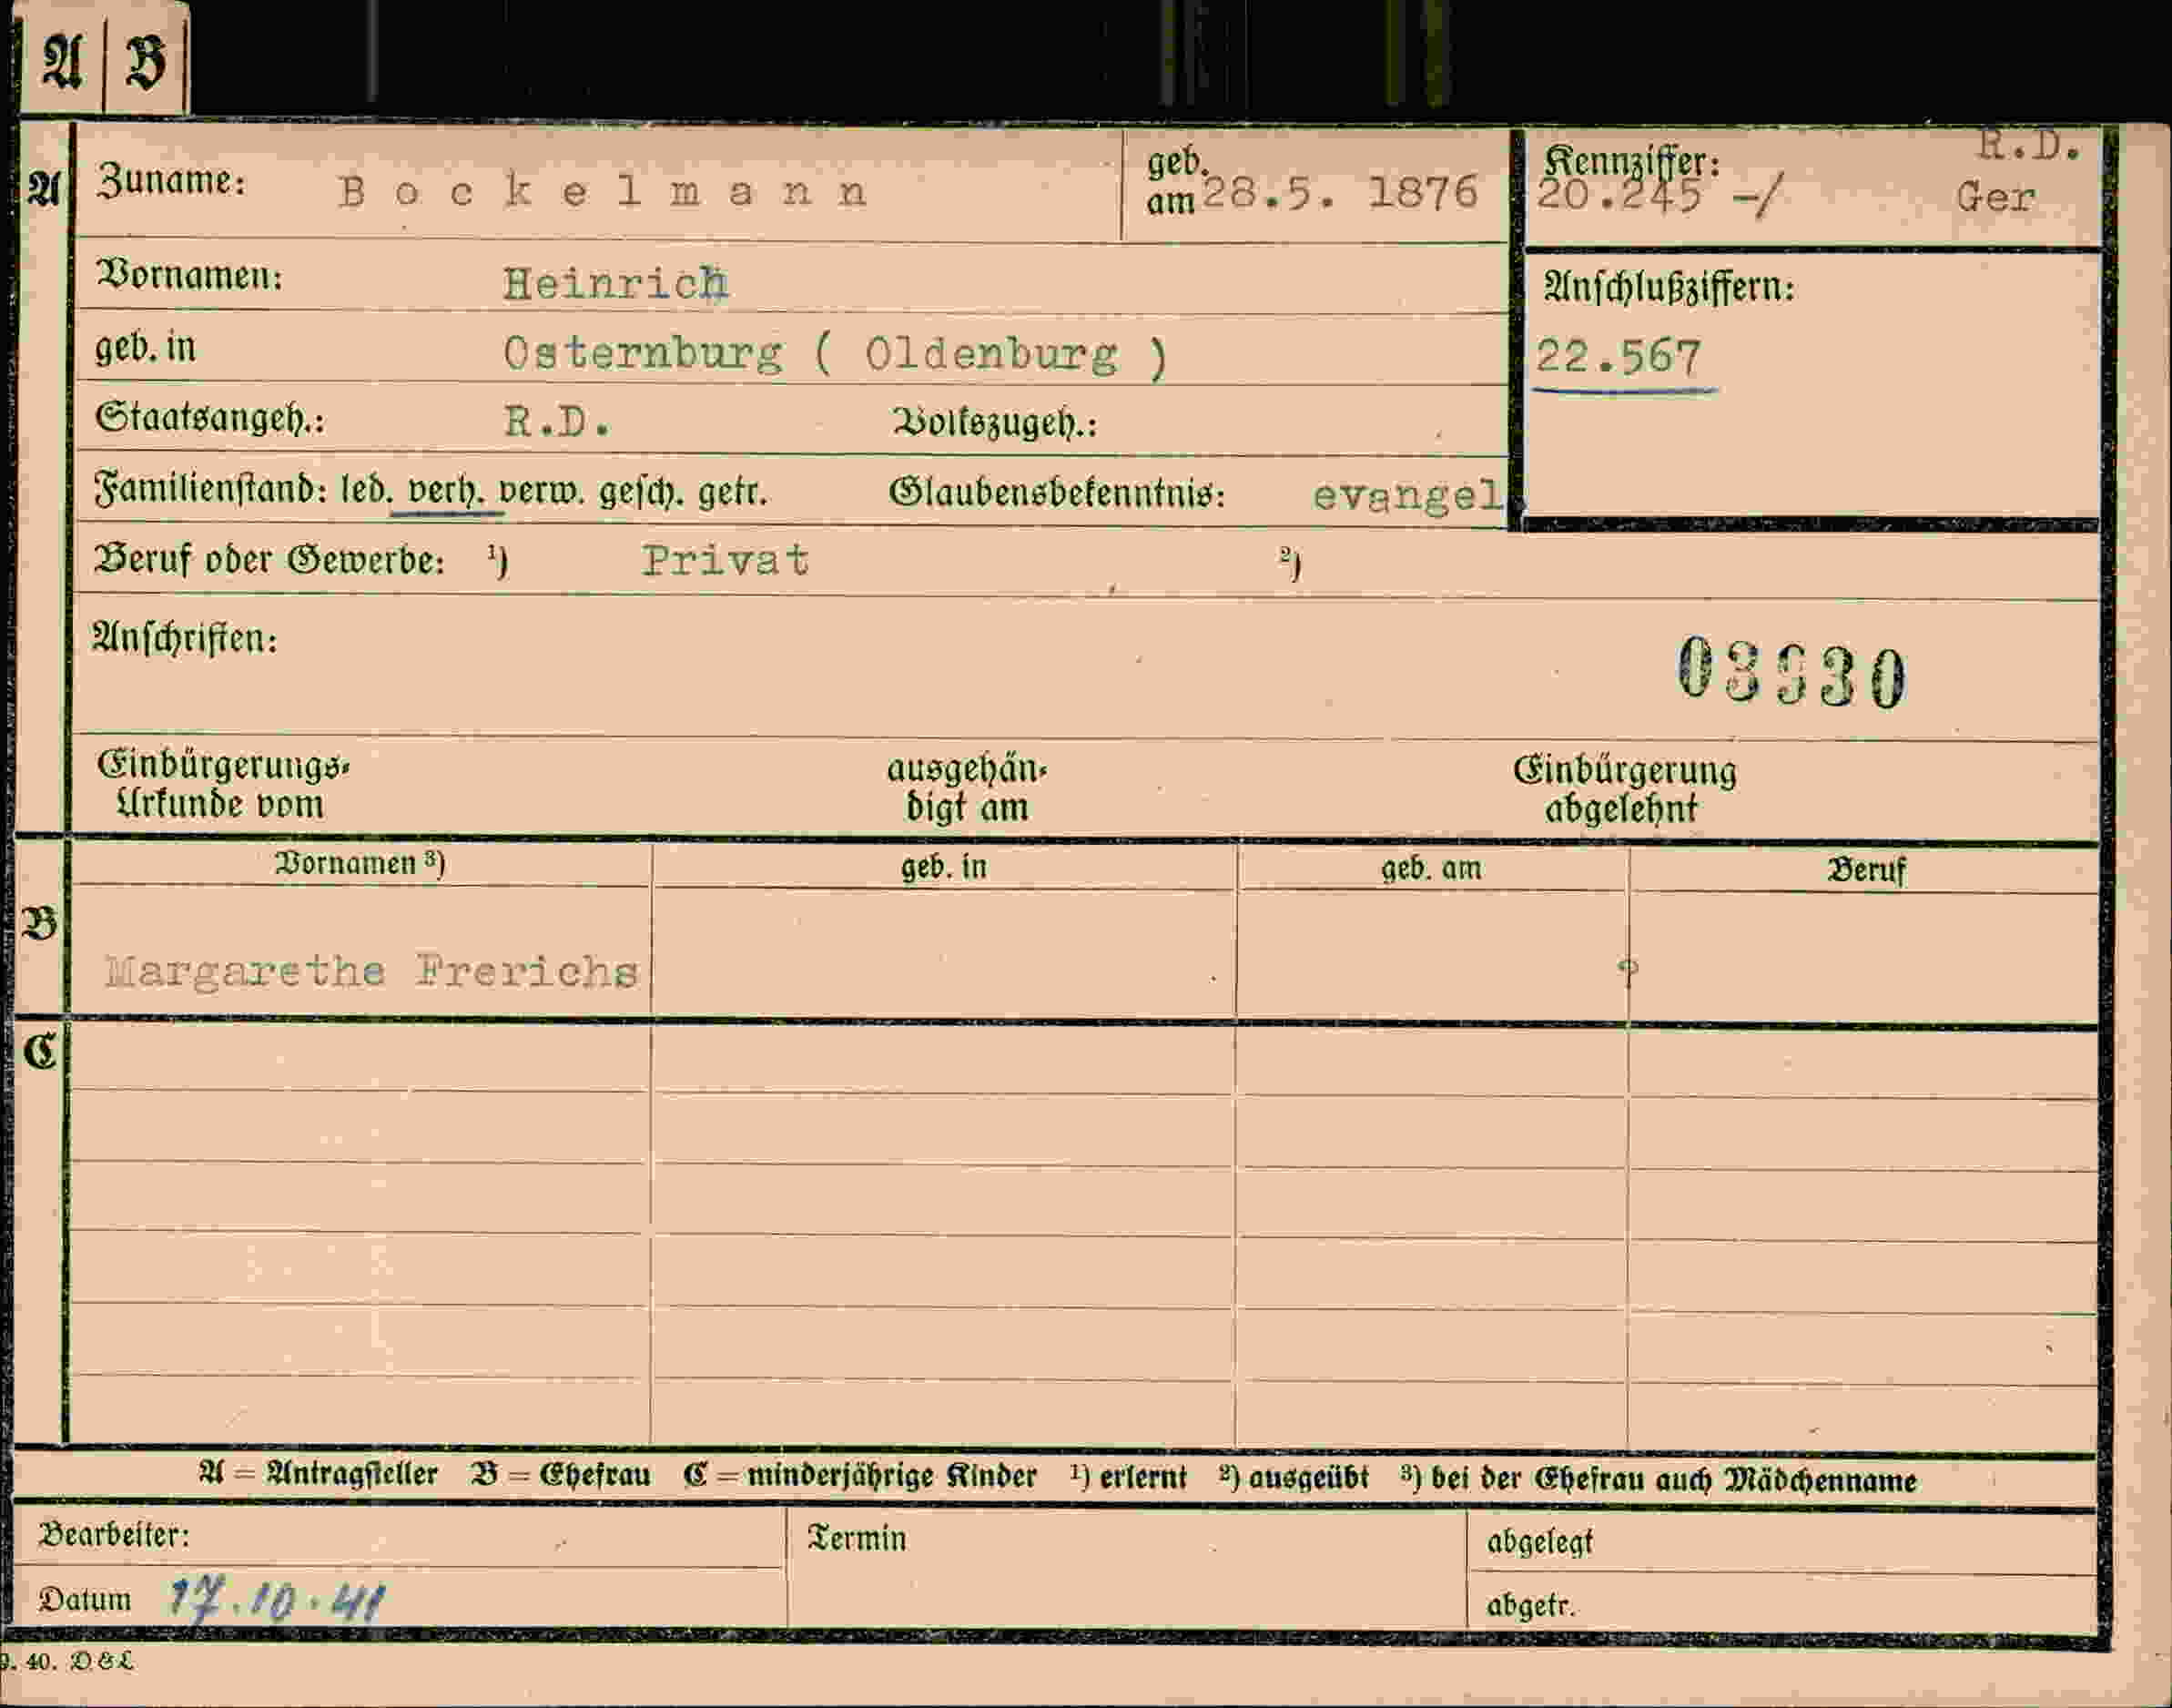 A B
A Zuname: Bockelmann geb. am 28.5. 1876 Kennziffer: 20.245 -/ R.D. Ger
Vornamen: Heinrich
Anschlußziffern:
geb. in Osternburg ( Oldenburg )
22.567
Staatsangeh.: R.D. Volkszugeh.:
Familienstand: led. verh. verw. gesch. getr. Glaubensbekenntnis: evangel
Beruf oder Gewerbe: ¹) Privat ²)
Anschriften:
Einbürgerungs-
Urkunde vom
ausgehän-
digt am
Einbürgerung
abgelehnt
Vornamen ³) geb. in geb. am Beruf
B
Margarethe Frerichs
C
A = Antragsteller B = Ehefrau C = minderjährige Kinder ¹) erlernt ²) ausgeübt ³) bei der Ehefrau auch Mädchenname
Bearbeiter: Termin abgelegt
Datum 17.10.41 abgetr.
9. 40. D&L